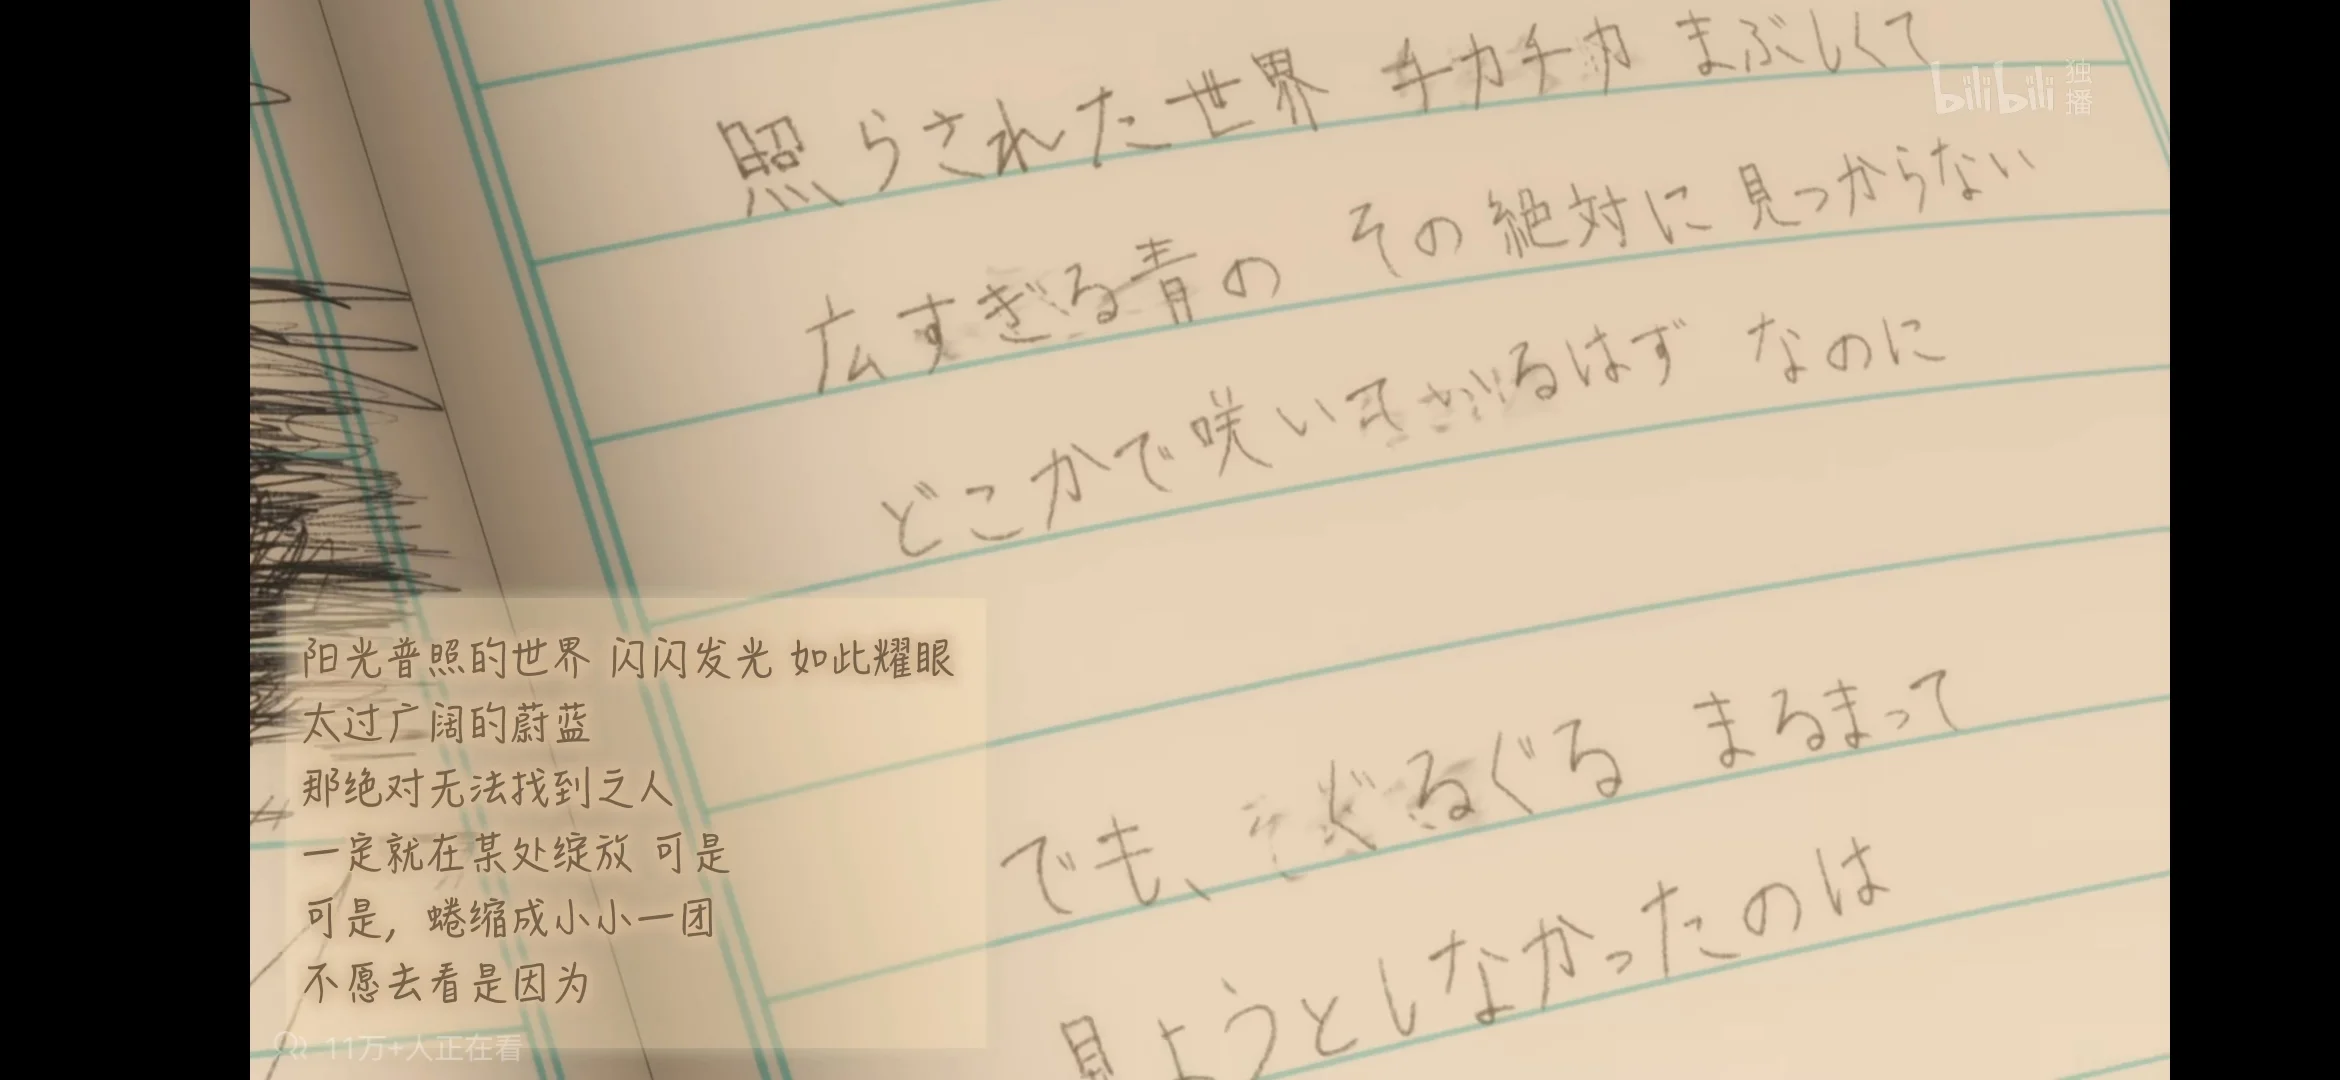 照らされた世界 チカチカ まぶしくて
広すぎる青の その絶対に見つからない
どこかで咲いてるはず なのに
でも、ぐるぐる まるまって
見ようとしなかったのは
bilibili 独播
阳光普照的世界 闪闪发光 如此耀眼
太过广阔的蔚蓝
那绝对无法找到之人
一定就在某处绽放 可是
可是，蜷缩成小小一团
不愿去看是因为
11万+人正在看